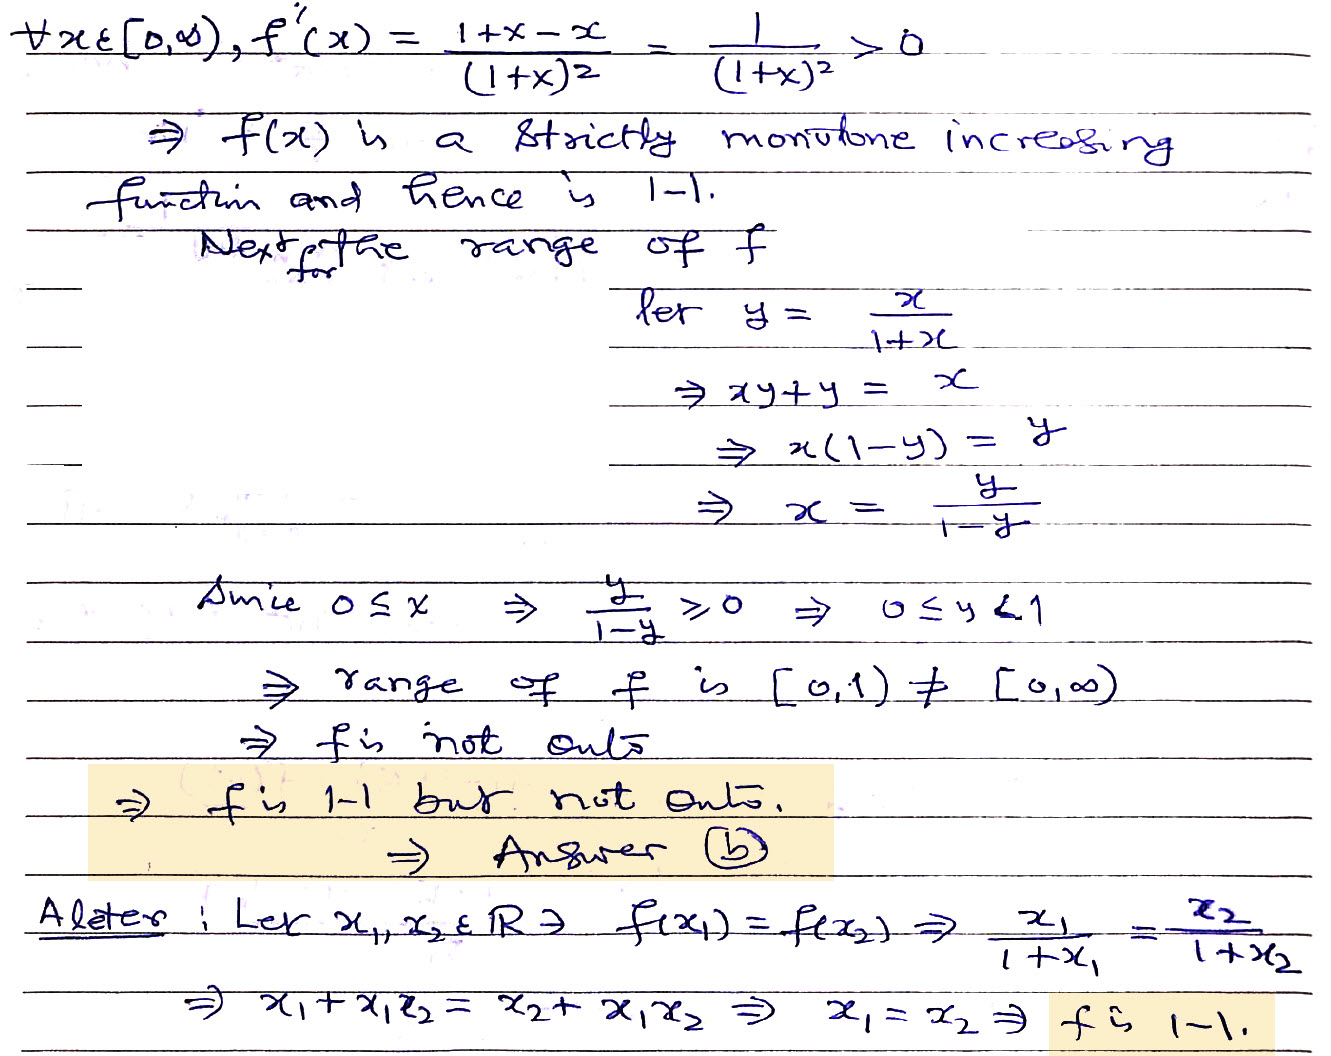 ∀x∈[0,∞), f'(x) = (1+x-x)/(1+x)² = 1/(1+x)² > 0
⇒ f(x) is a strictly monotone increasing
function and hence is 1-1.
Next for the range of f
let y = x/(1+x)
⇒ xy+y = x
⇒ x(1-y) = y
⇒ x = y/(1-y)
Since 0 ≤ x ⇒ y/(1-y) ≥ 0 ⇒ 0 ≤ y < 1
⇒ range of f is [0,1) ≠ [0,∞)
⇒ f is not onto
⇒ f is 1-1 but not onto.
⇒ Answer (b)
Aleter : Let x₁, x₂ ∈ R ∋ f(x₁) = f(x₂) ⇒ x₁/(1+x₁) = x₂/(1+x₂)
⇒ x₁+x₁x₂ = x₂+x₁x₂ ⇒ x₁ = x₂ ⇒ f is 1-1.